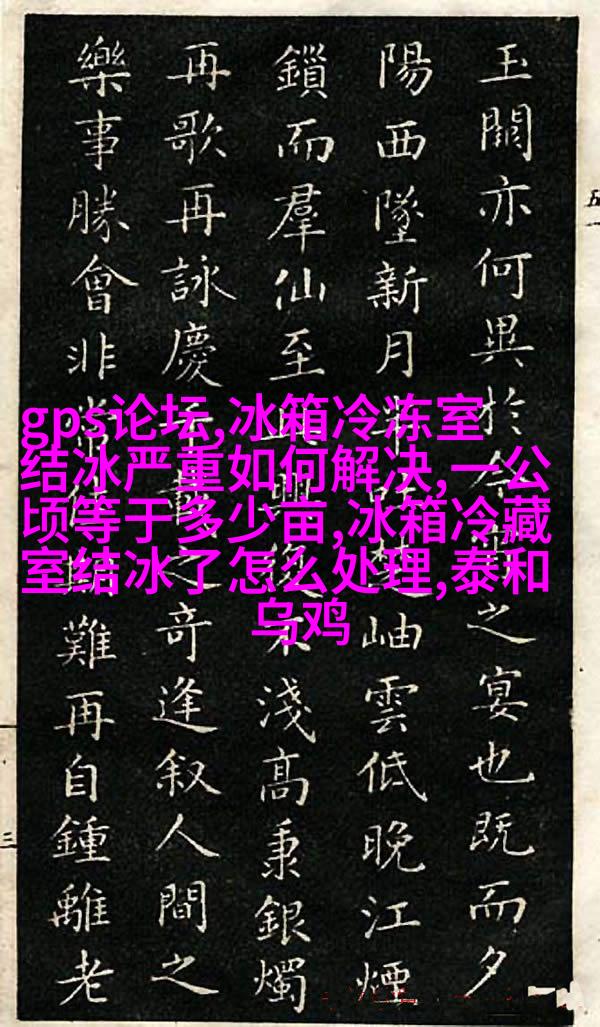 玉闕亦何異於今之宴也既而夕
陽西墜新月半楚岫雲低晚江煙
鎖而羣仙至興復不淺高秉銀燭
再歌再詠慶千載之奇逢叙人間之
樂事勝會非常難再自鍾離老
gps论坛,冰箱冷冻室
结冰严重如何解决,一公
顷等于多少亩,冰箱冷藏
室结冰了怎么处理,泰和
乌鸡
五一
三